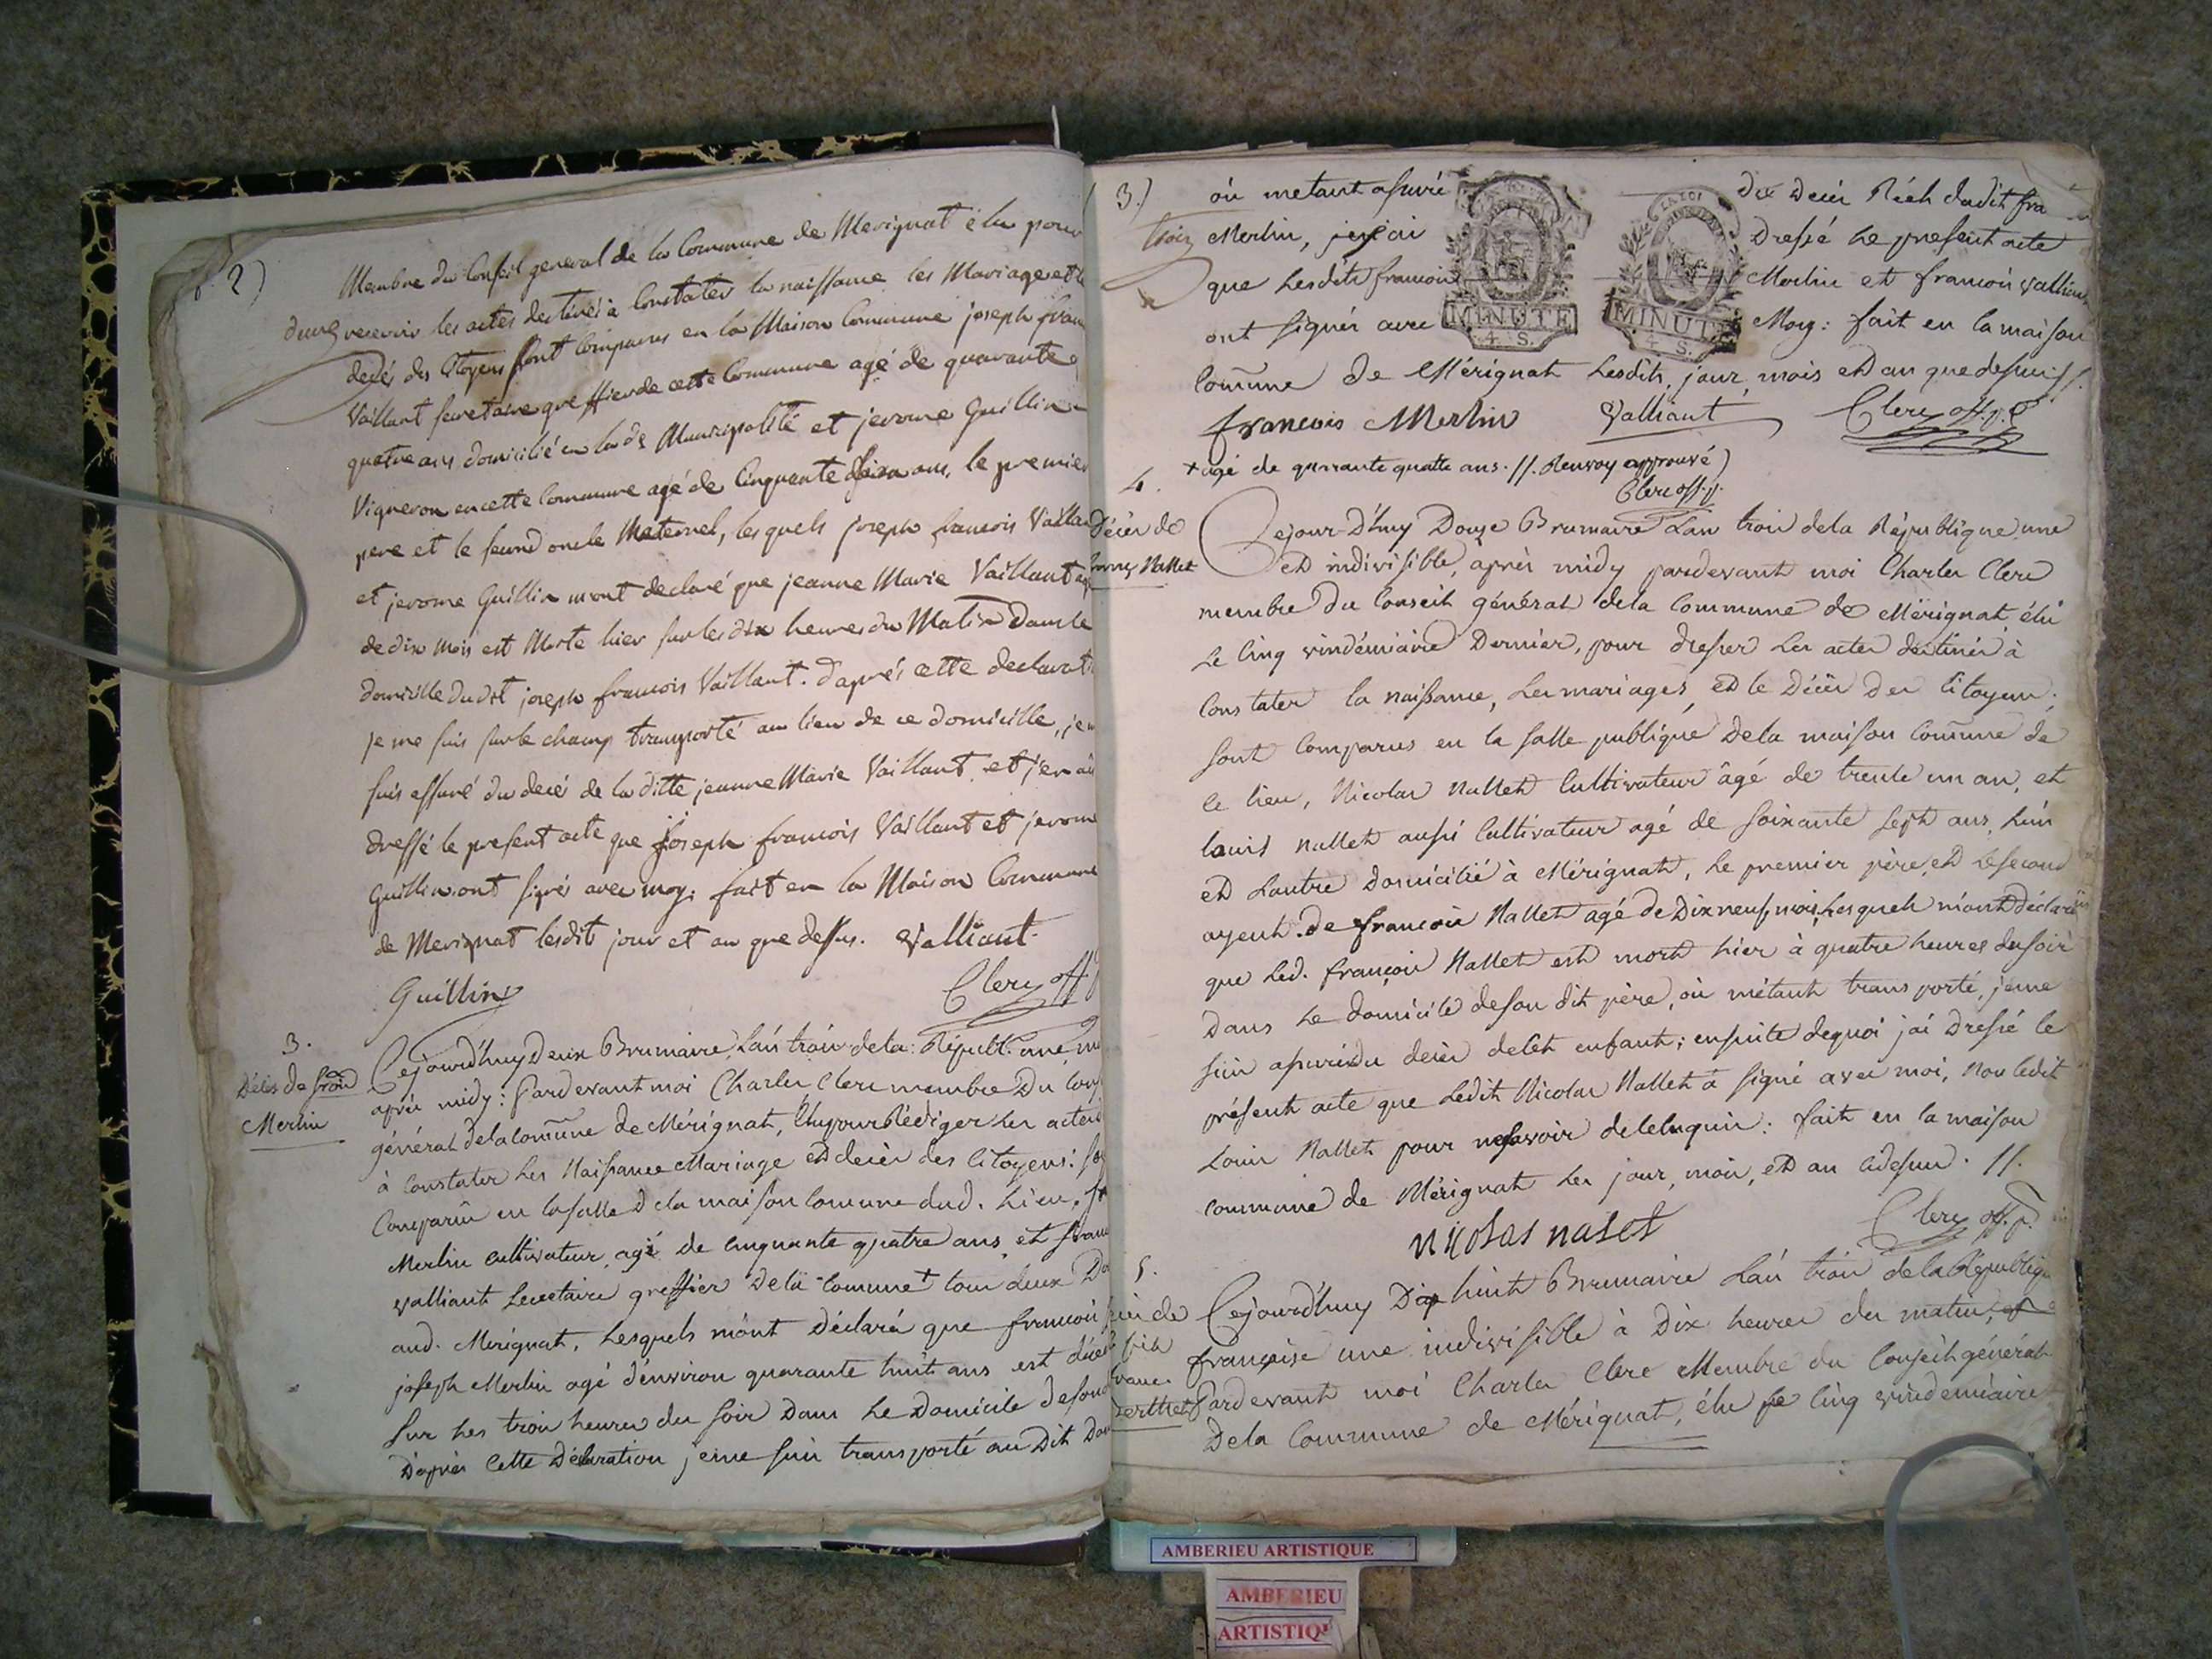 2)
Membre du Conseil general de la Commune de Merignat elu pour
recevoir les actes destinés a Constater la naissance les Mariages et le
decés des Citoyens sont comparus en la Maison Commune joseph fran
Vaillant secretaire greffier de cette Commune agé de quarante
quatre ans domicilié en lade Municipalité et jerome Guillin
Vigneron en cette Commune agé de Cinquante ans, le premier
pere et le second oncle Maternel, lesquels joseph francois Vaillan
et jerome Guillin mont declaré que jeanne Marie Vaillant agé
de dix mois est Morte hier sur les dix heures du Matin dans le
domicille dudit joseph francois Vaillant. d'aprés cette declarati
je me suis sur le champ transporté au lieu de ce domicille, je m
suis assuré du decé de la ditte jeanne Marie Vaillant et j'en ai
dressé le present acte que joseph francois Vaillant et jerome
Guillin ont signés avec moy. fait en la Maison Commune
de Merignat lesdit jour et an que dessus. Valliant
Guillin
Clerc off. p
3.
Décès de
Merlin
Cejourd'huy deux Brumaire, L'an trois de la Républ. une, in
après midy: Pardevant moi Charles Clerc membre Du Cons
général dela Comune de Mérignat, Elu pour Rédiger Les actes
à Constater Les Naissance Mariage et decès des Citoyens: so
Comparus en la salle dela maison Comune dud. Lieu, fr
Merlin Cultivateur, agé de Cinquante quatre ans, et franc
Valliant Secretaire greffier Dela Comune + tous deux Do
aud. Merignat, Lesquels m'ont Déclaré que francois
joseph Merlin agé d'environ quarante huit ans est décé
sur Les trois heures du soir Dans Le Domicile de son
D'après Cette Déclaration je me suis transporté au Dit Do
3.)
où metant assuré du Decès Réel dudit fra
Merlin, j'en ai Dressé Le present acte
que Lesdits francois Merlin et francois Valliant
ont signés avec Moy: fait en la maison
MINUTE
4 S.
LA LOI
MINUTE
4 S.
Comune de Mérignat Lesdits, jour, mois et an que dessus //.
francois Merlin Valliant Clerc off. p.
+ agé de quarante quatre ans. //. Renvoy approuvé
Clerc off. p.
4.
Décès de
francois Nallet
Cejour-D'huy Douze Brumaire L'an trois dela République une
et indivisible, après midy pardevant moi Charles Clerc
membre Du Conseil général dela Commune de Mérignat élu
Le Cinq vindémiaire Dernier, pour dresser Les actes destinés à
Constater la naissance, Les mariages, et le Décès Des Citoyens;
sont Comparus en la salle publique Dela maison Comune de
Ce lieu, Nicolas Nallet Cultivateur âgé de trente un an, et
Louis Nallet aussi Cultivateur agé de soixante sept ans, L'un
et L'autre Domicilié à Mérignat, Le premier père, et le second
ayeul. de francois Nallet agé de Dix neuf mois, Lesquels m'ont Déclaré
que Led. françois Nallet est mort hier à quatre heures du soir
Dans Le domicile de son dit père, où métant transporté, je me
suis assuré du décès de Cet enfant; ensuite dequoi j'ai Dressé le
présent acte que Ledit Nicolas Nallet à signé avec moi, Non Ledit
Louis Nallet pour ne savoir de Ce Enquis: fait en la maison
commune de Mérignat Les jour, mois, et an cidessus. //.
nicolas nalet
Clerc off. p.
5.
Decès de
franc.
Berthet
Cejourd'huy Dix huit Brumaire L'an trois de la République
française une indivisible à Dix heures du matin,
Pardevant moi Charles Clerc Membre du Conseil général
Dela Commune de Mérignat, élu le Cinq vindémiaire
AMBERIEU ARTISTIQUE
AMBERIEU
ARTISTIQ